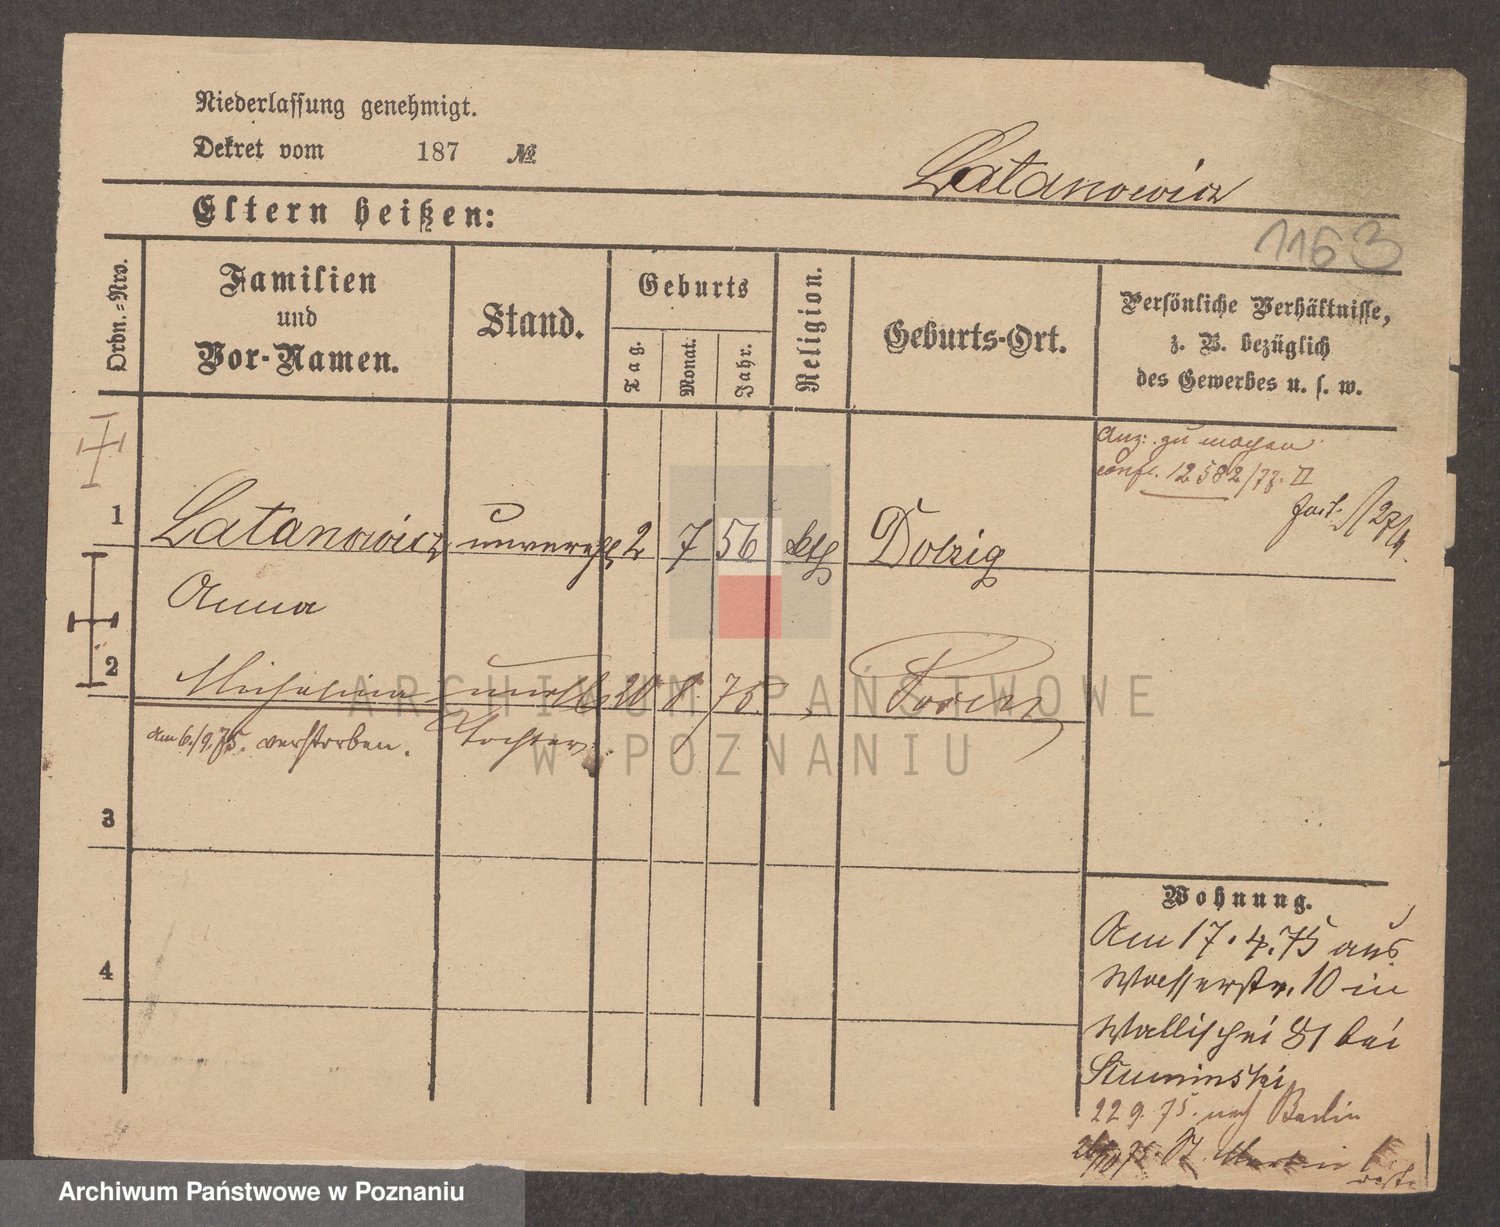 Niederlassung genehmigt.
Dekret vom 187 №
Latanowicz
Eltern heißen:
1163
Ordn.-Nro.
Familien
und
Vor-Namen.
Stand.
Geburts
Tag.
Monat.
Jahr.
Religion.
Geburts-Ort.
Persönliche Verhältnisse,
z. B. bezüglich
des Gewerbes u. s. w.
Anz: zu machen
conf. 12582/77. II
27/4.
1 Latanowicz unverehl 2 7 56 kth Dolzig
Anna
2 Michalina unehl 20 8. 75. Posen
am 6/9.75. verstorben. Tochter
3
4
Wohnung.
Am 17.4.75 aus
Wasserstr. 10 in
Wallischei 81 bei
Szuminski
22 9. 75. nach Berlin
75. St. Martin
ARCHIWUM PAŃSTWOWE
W POZNANIU
Archiwum Państwowe w Poznaniu